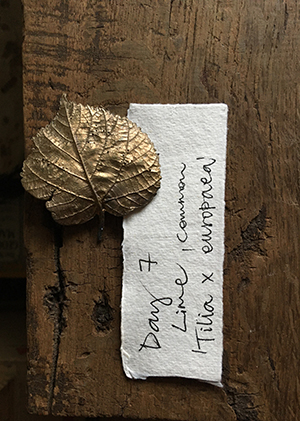 Day 7
Lime | Common
'Tilia x europaea'